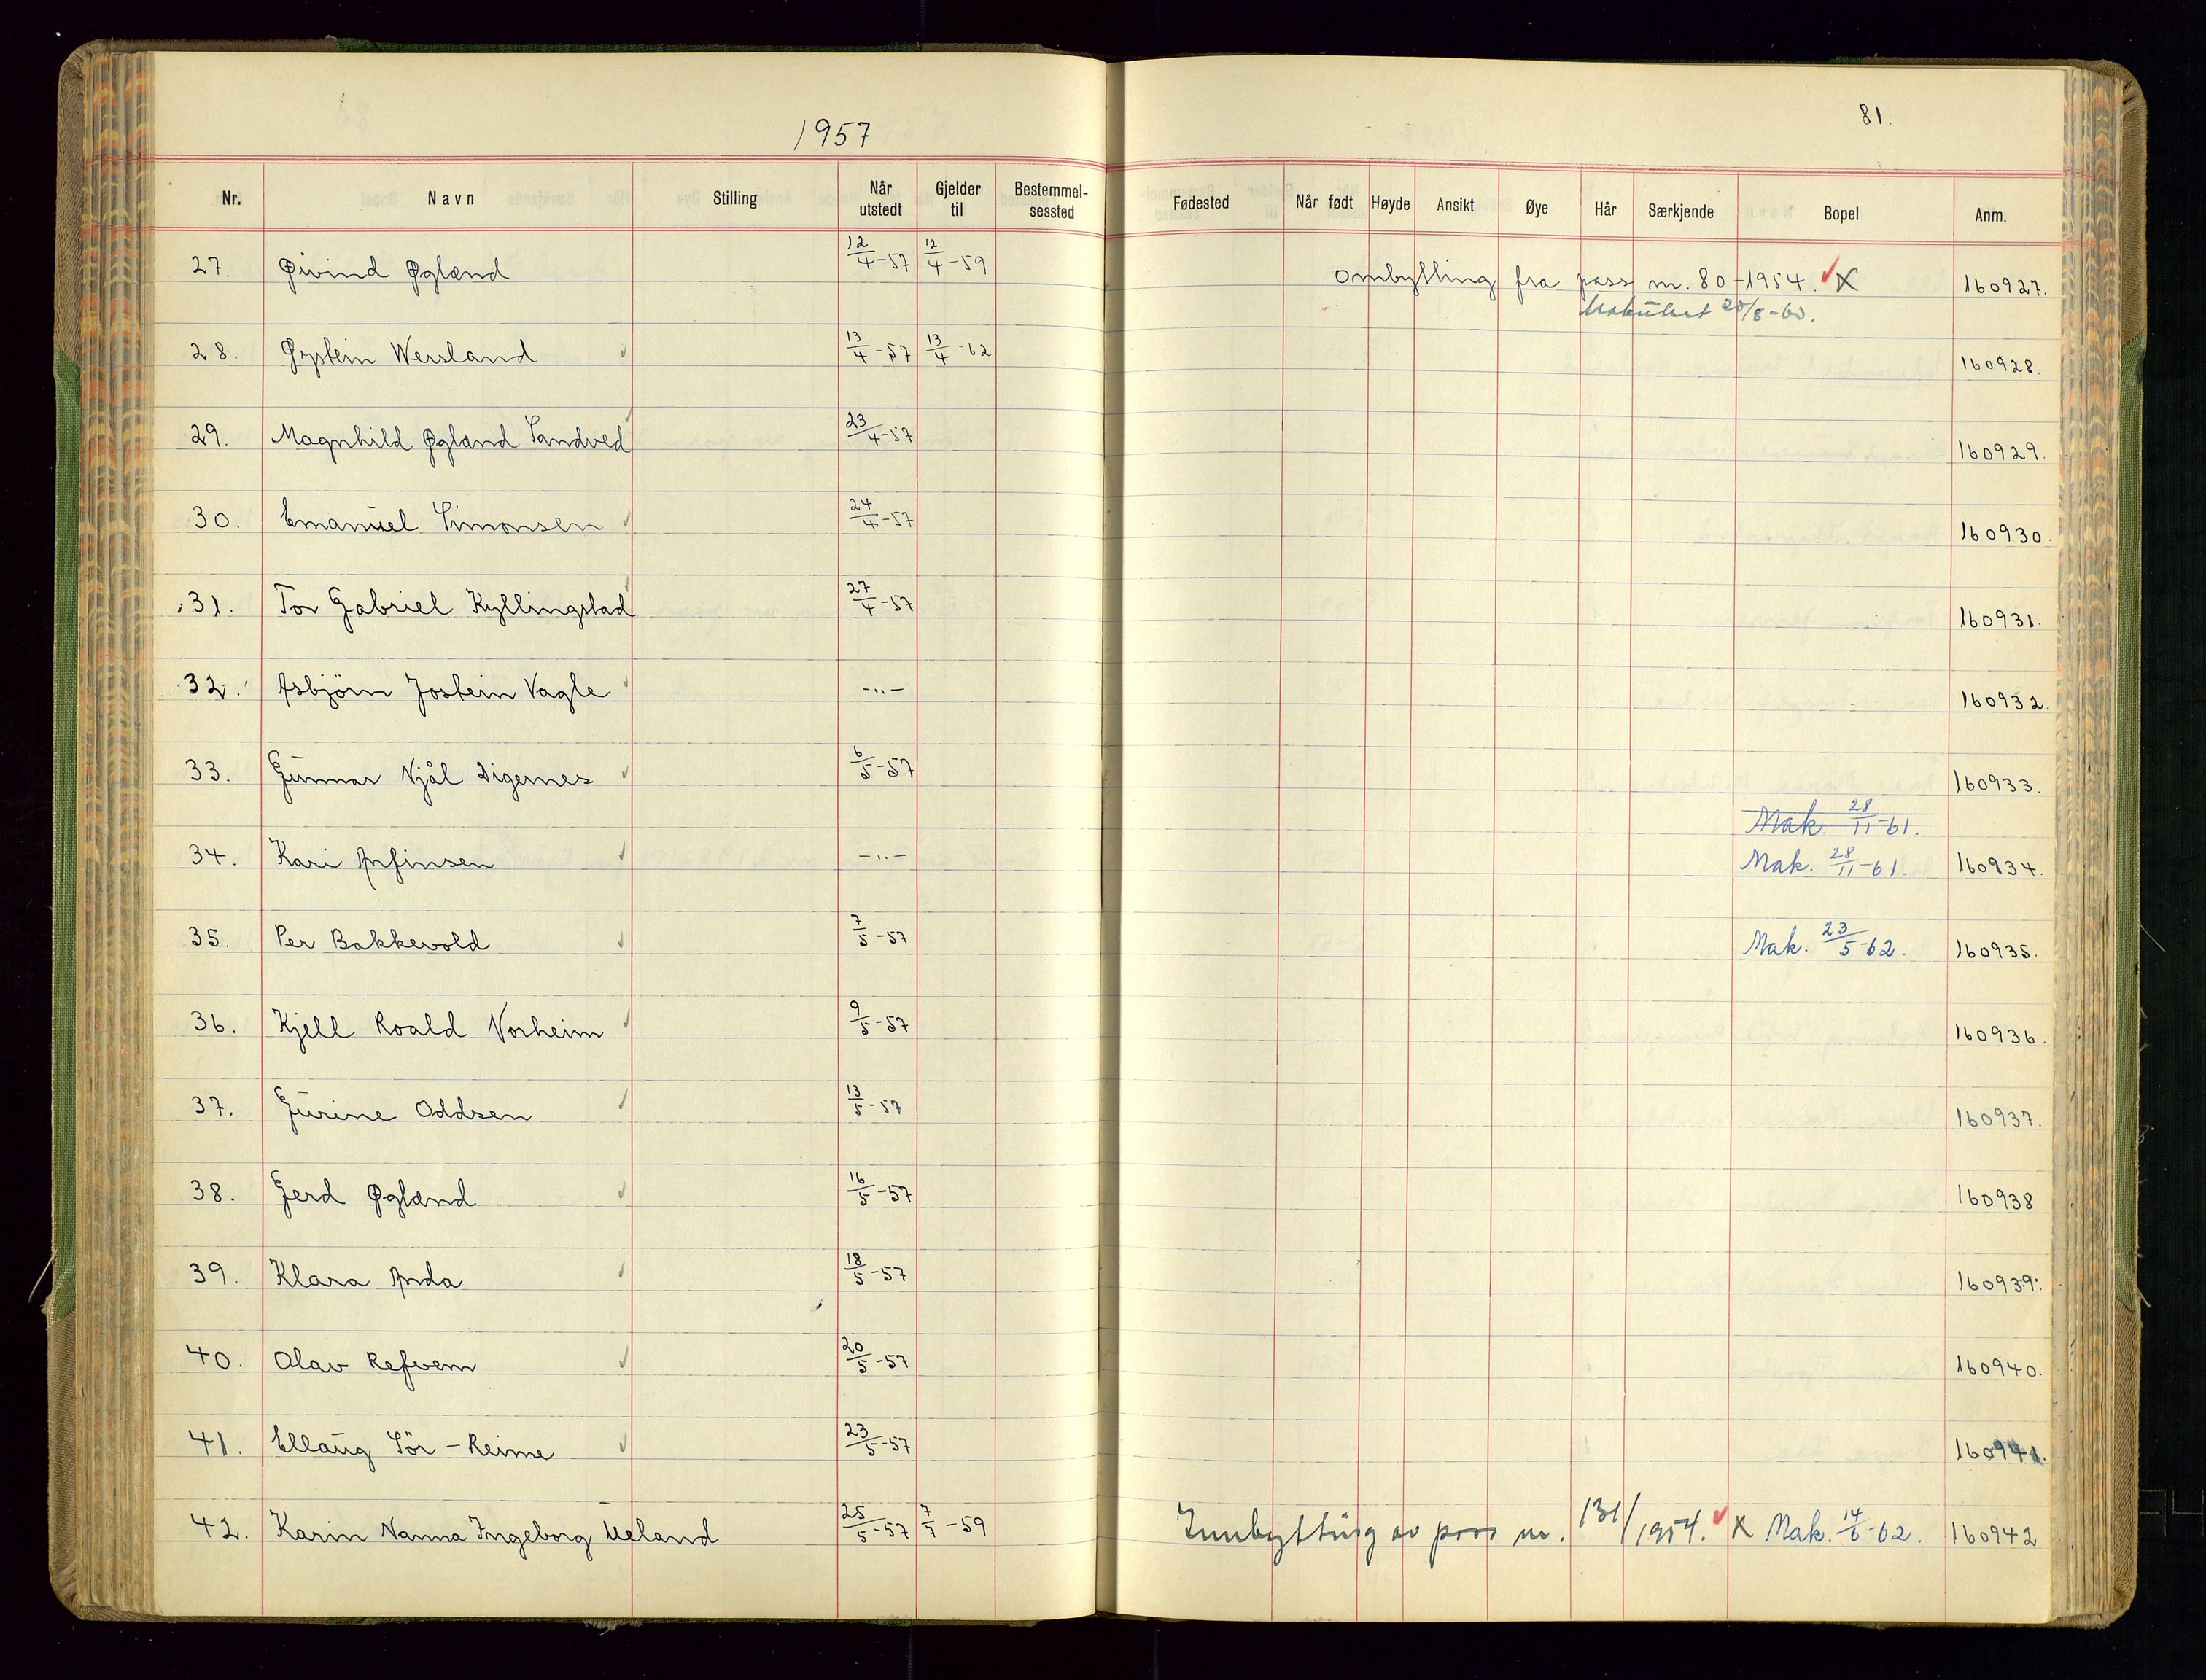 1957
81.
Nr. Navn Stilling Når utstedt Gjelder til Bestemmel-sessted Fødested Når født Høyde Ansikt Øye Hår Særkjende Bopel Anm.
27. Øivind Øglænd 12/4-57 12/4-59 Ombytting fra pass nr. 80-1954. ✓ X 160927.
Makulert 20/8-60.
28. Øystein Wersland ✓ 13/4-57 13/4-62 160928.
29. Magnhild Øglænd Sandved ✓ 23/4-57 160929.
30. Emanuel Simonsen ✓ 24/4-57 160930.
31. Tor Gabriel Kyllingstad ✓ 27/4-57 160931.
32. Asbjörn Jostein Vagle ✓ -"- 160932.
33. Gunnar Njål Digernes ✓ 6/5-57 160933.
Mak. 28/11-61.
34. Kari Anfinsen ✓ -"- Mak. 28/11-61. 160934.
35. Per Bakkevold ✓ 7/5-57 Mak. 23/5-62. 160935.
36. Kjell Roald Vorheim ✓ 9/5-57 160936.
37. Gurine Oddsen ✓ 13/5-57 160937.
38. Gerd Øglænd ✓ 16/5-57 160938
39. Klara Anda ✓ 18/5-57 160939.
40. Olav Refvem ✓ 20/5-57 160940.
41. Ellaug Sör-Reime ✓ 23/5-57 160941.
42. Karin Nanna Ingeborg Ueland 25/5-57 7/7-59 Innbytting av pass nr. 131/1954. ✓ X Mak. 14/6-62. 160942